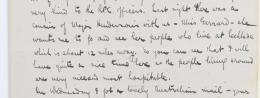 very kind to the both officers. Last night there was a
cousin of Major Henderson's with us - Miss Gerrard - she
wants me to go and see her people who live at
which is about 12 miles away. So you can see that I will
have quite a nice time here as the people living around
are very nice and most hospitable.
On Wednesday I got a lovely Australian mail - your